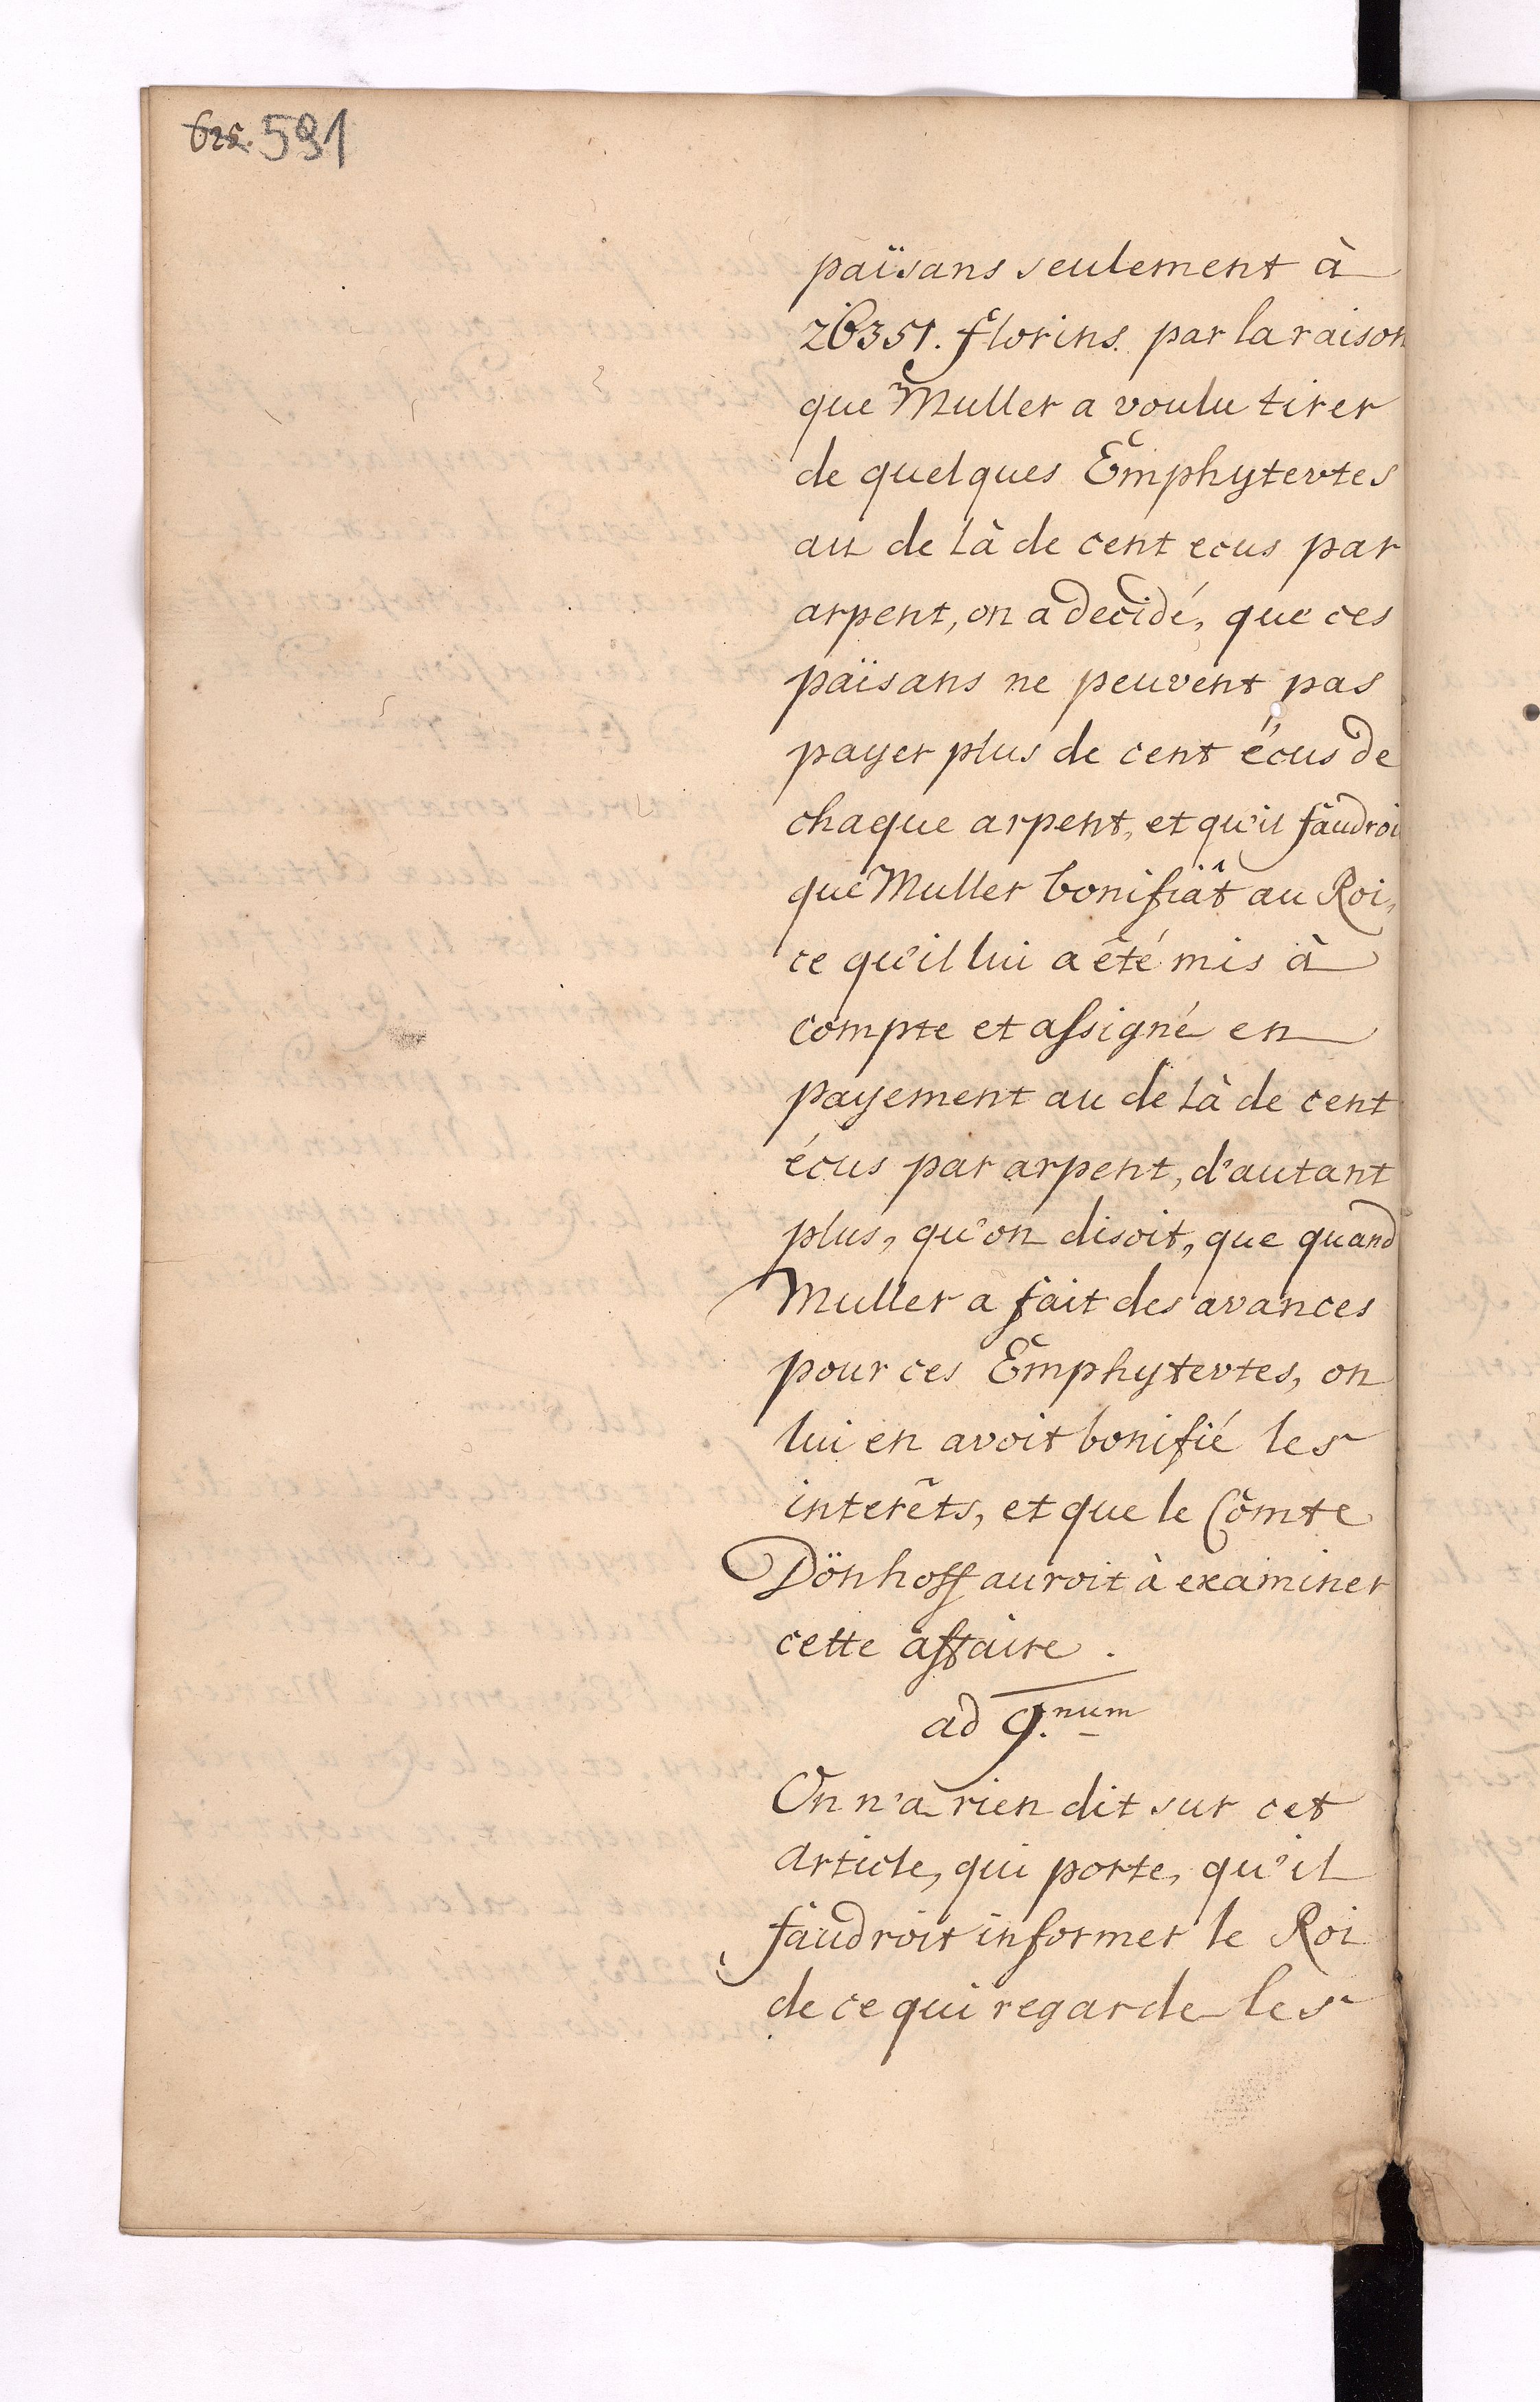 591
païsans seulement à
26351. florins. par la raison
que Muller a voulu tirer
de quelques Emphytevtes
au de là de cent ecus par
arpent, on a decidé, que ces
païsans ne peuvent pas
payer plus de cent écus de
chaque arpent, et qu'il faudroi
que Muller bonifiât au Roi,
ce qu'il lui a êté mis à
compte et assigné en
payement au de là de cent
écus par arpent, d'autant
plus, qu'on disoit, que quand
Muller a fait des avances
pour ces Emphytevtes, on
lui en avoit bonifié les
interêts, et que le Comte
Dönhoff auroit à examiner
cette affaire.
ad 9.num
On n'a rien dit sur cet
article, qui porte, qu'il
faudroit informer le Roi
de ce qui regarde les